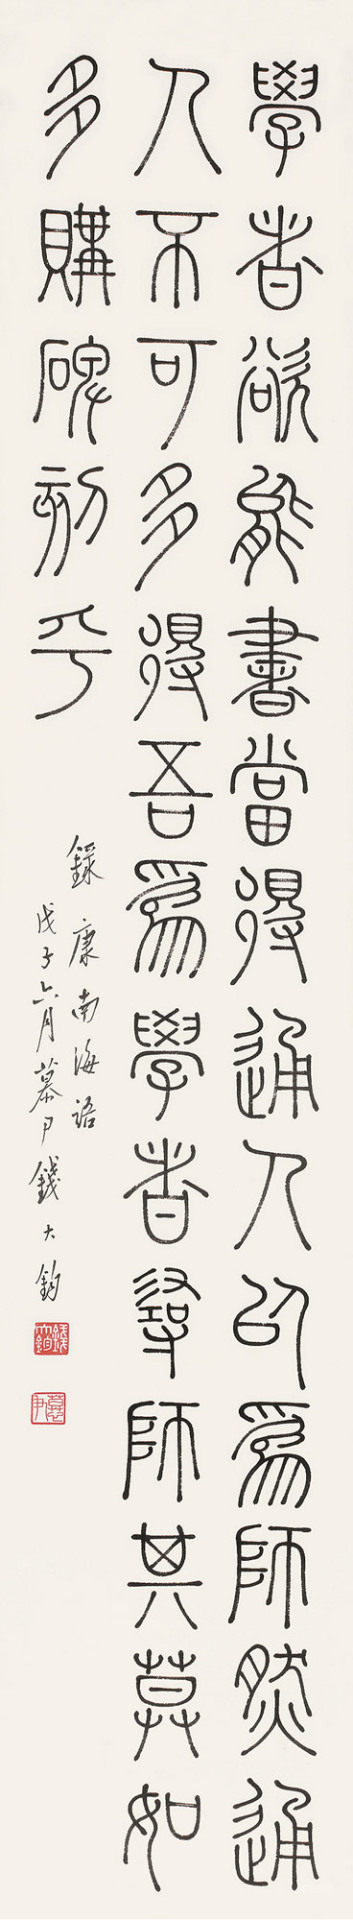 學者欲能書當得通人以爲師然通
人不可多得吾爲學者尋師其莫如
多購碑刻乎
錄康南海語
戊子六月慕尹錢大鈞
錢大鈞
慕尹